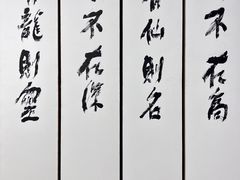 不在高
仙則名
不在深
龍則靈